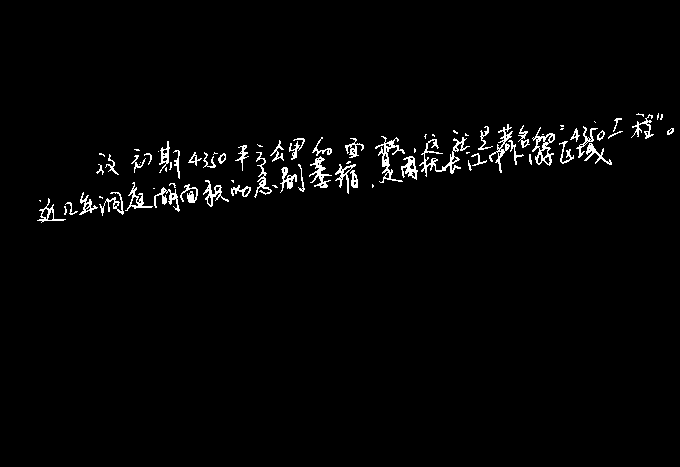 放初期4350平方公里的面积,这就是著名的“4350工程”。
近几年洞庭湖面积的急剧萎缩,是困扰长江中下游区域